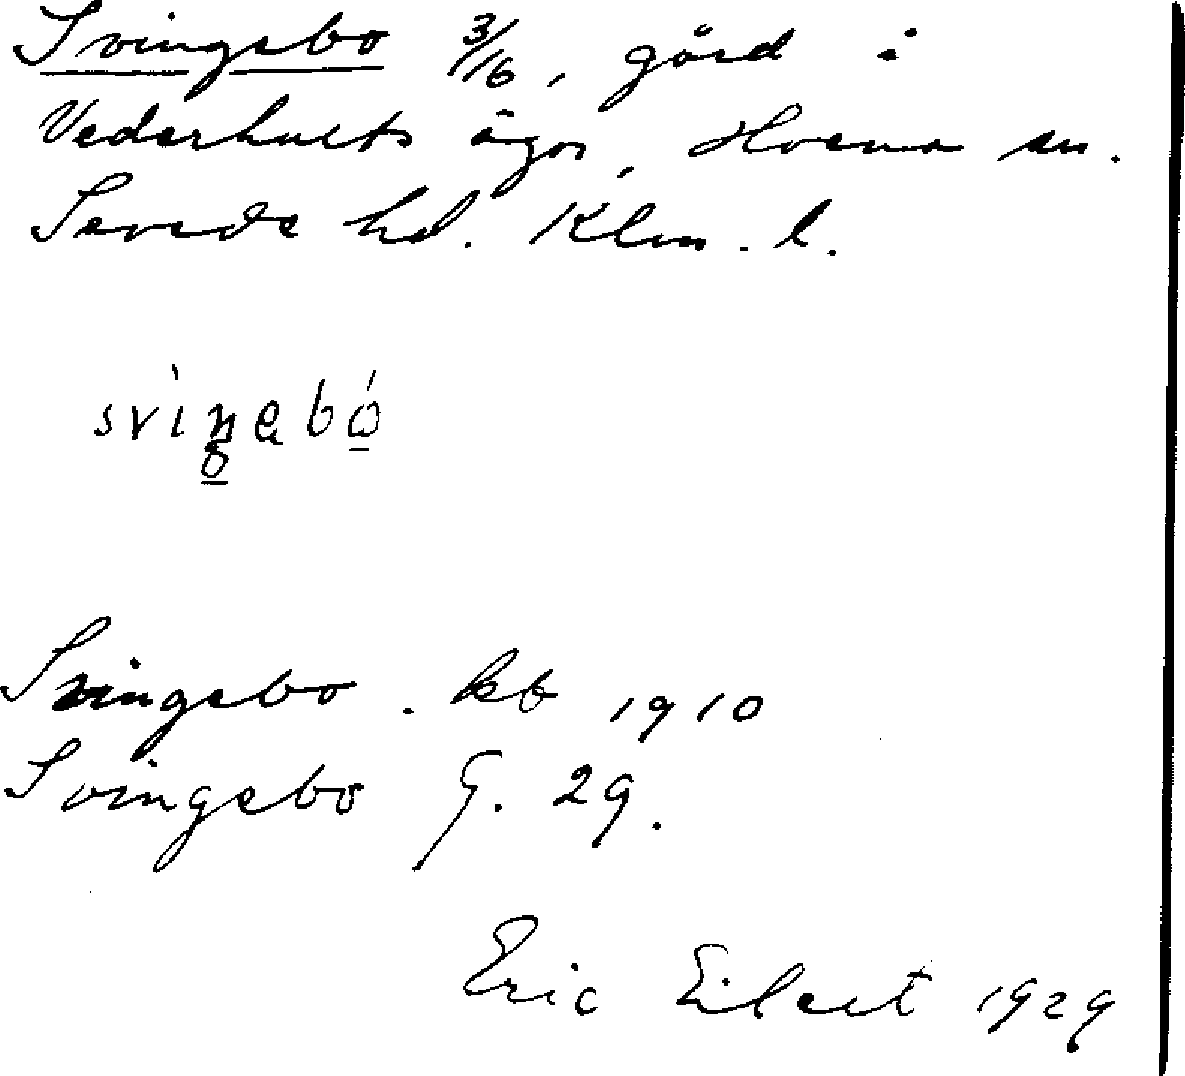 Svingebo 3/16, gård i
Vederhults ägor, Hvena sn.
Sevede hd. Klm. l.
svìŋebó
Svingebo. kb 1910
Svingebo G. 29.
Eric Eilert 1929